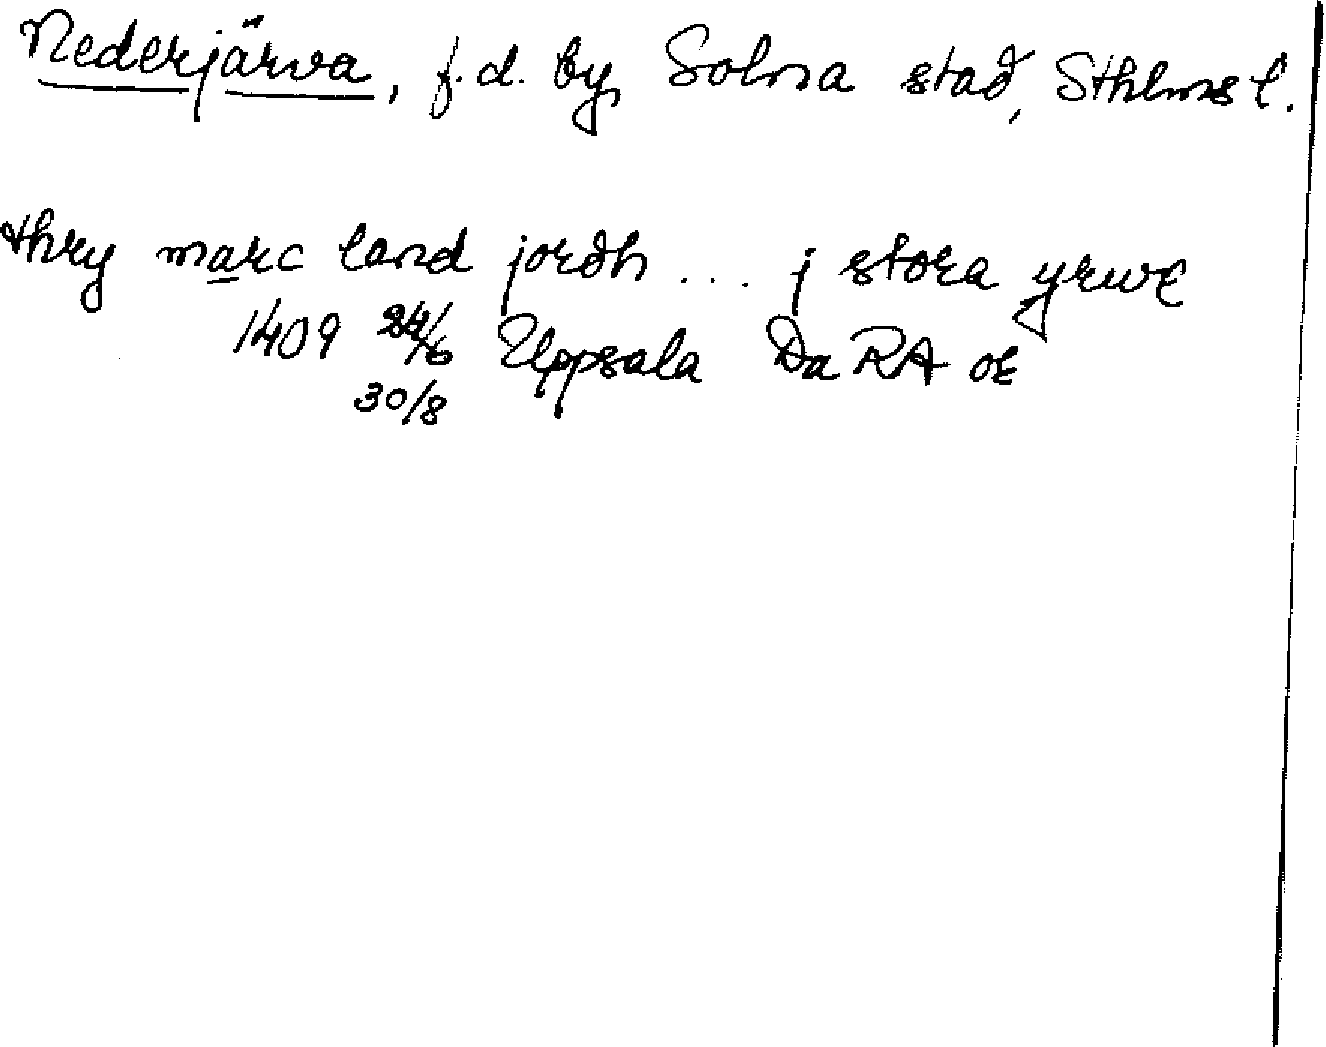 Nederjärva, f.d. by, Solna stad, Sthlms l.
thry marc land jordh ... j stora yrwe
1409 24/6 Uppsala Da RA oc
30/8